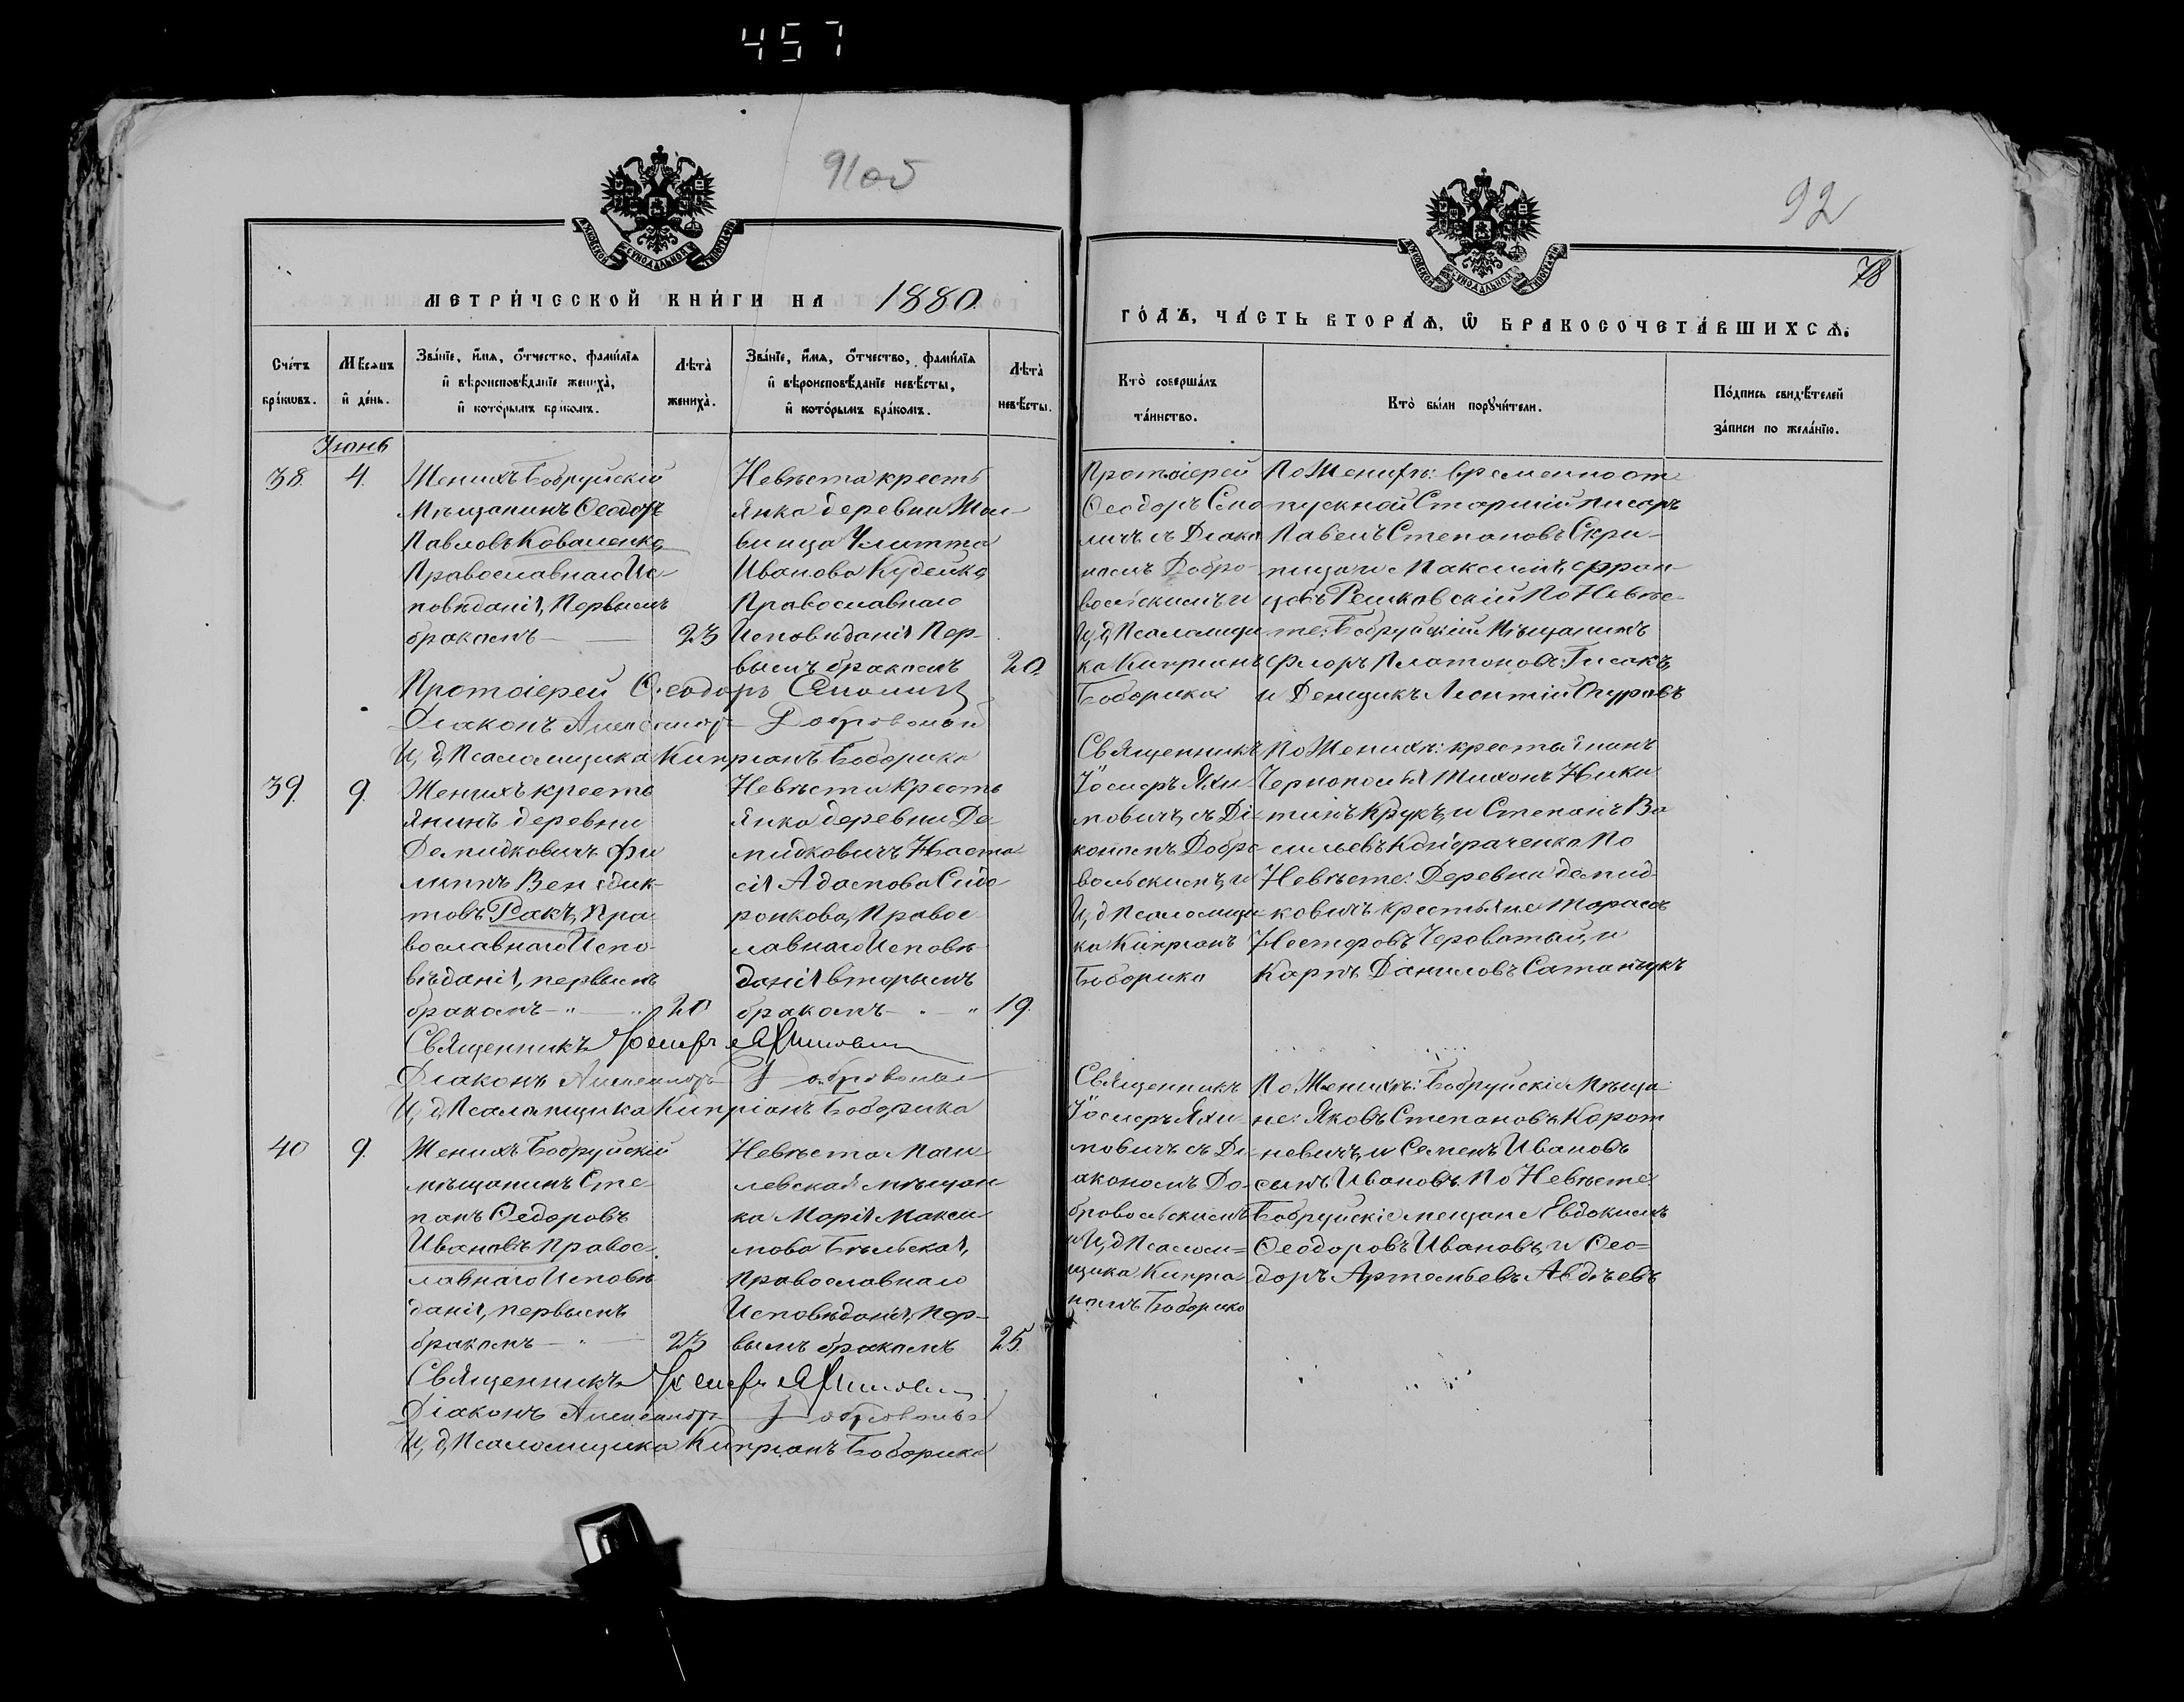 457
91об
92
78
МЕТРИЧЕСКОЙ КНИГИ НА 1880
ГОДЪ, ЧАСТЬ ВТОРАЯ, Ѡ БРАКОСОЧЕТАВШИХСЯ.
Счетъ браковъ.
Мѣсяцъ и день.
Званіе, имя, отчество, фамилія
и вѣроисповѣданіе жениха,
и которымъ бракомъ.
Лѣта
жениха.
Званіе, имя, отчество, фамилія
и вѣроисповѣданіе невѣсты,
и которымъ бракомъ.
Лѣта
невѣсты.
Кто совершалъ
таинство.
Кто были поручители.
Подпись свидѣтелей
записи по желанію.
Іюнь
38. 4.
Женихъ Бобруйскій
Мѣщанинъ Ѳеодоръ
Павловъ Коваленко,
Православнаго Ис-
повѣданія, Первымъ
бракомъ — 23
Невѣста кресть
янка деревни
Иванова Кудейко,
Православнаго
Исповѣданія Пер-
вымъ бракомъ 20.
Протоіерей
Ѳеодоръ Смо
личъ съ Діако
номъ Добро-
вольскимъ и
И, д, Псаломщи
ка Кипріанъ
Боборика
По Женихѣ: временно от
пускной Старшій писарь
Павелъ Степановъ Скри-
пица и Максимъ Фран
цовъ Решковскій По Невѣс-
те: Бобруйскій Мѣщанинъ
Флоръ Платоновъ Гисакъ,
и Денщикъ Леонтій
Протоіерей Ѳеодоръ Смоличъ
Діаконъ Александръ Добровольскій
И, д, Псаломщика Кипріанъ Боборика
39. 9.
Женихъ кресть
янинъ деревни
Демидковичъ Фи
липпъ Венедик-
товъ Ракъ, Пра
вославнаго Испо
вѣданія, первымъ
бракомъ — " — " 20
Невѣста Кресть
янка деревни Де
мидковичъ Наста
сія Адамова Сидо
ронкова, Правос
лавнаго Исповѣ
данія вторымъ
бракомъ — " 19.
Священникъ
Іосифъ Яхи-
мовичъ, съ Ді-
кономъ Добро-
вольскимъ, и
И, д Псаломщи-
ка Кипріанъ
Боборика
По Женихѣ: крестьянинъ
Чернополья Тихонъ Ники
тинъ Крукъ, и Степанъ Ва
сильевъ По
Невѣсте: Деревни демид-
ковичъ крестьяне Тарасъ
Несторовъ Червотый, и
Карпъ Даниловъ
Священникъ Іосифъ Яхимовичъ
Діаконъ Александръ Добровольскій
И, д, Псаломщика Кипріанъ Боборика
40 9.
Женихъ Бобруйскій
мѣщанинъ Сте
панъ Ѳедоровъ
Ивановъ Правос
лавнаго Исповѣ
данія, первымъ
бракомъ — " — 23
Невѣста Моги
левская мѣщан
ка Марія Макси
мова Бѣльская,
Православнаго
Исповѣданія, Пер-
вымъ бракомъ 25.
Священникъ
Іосифъ Яхи-
мовичъ съ Ді-
акономъ До-
бровольскимъ
и И, д Псалом=
щика Кипріа-
номъ Боборико
По Женихѣ: Бобруйскіе Мѣща
не: Яковъ Степановъ Корот
невичъ, и Семенъ Ивановъ
сынъ Ивановъ. По Невѣсте:
Бобруйскіе мещане Евдокимъ
Ѳеодоровъ Ивановъ, и Ѳео=
доръ Артемьевъ Авдѣевъ
Священникъ Іосифъ Яхимовичъ
Діаконъ Александръ Добровольскій
И, д, Псаломщика Кипріанъ Боборика